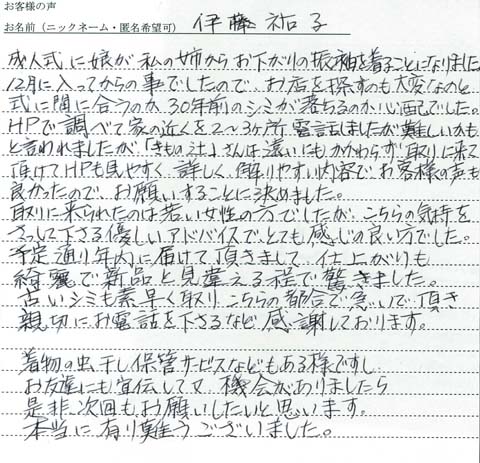 お客様の声
お名前（ニックネーム・匿名希望可） 伊藤祐子
成人式に娘が私の姉からお下がりの振袖を着ることになりました。
12月に入ってからの事でしたので、お店を探すのも大変なのと
式に間に合うのか、30年前のシミが落ちるのか心配でした。
HPで調べて家の近くを2〜3ヶ所電話しましたが難しいかも
と言われましたが「きもの辻」さんは遠いにもかかわらず取りに来て
頂けてHPも見やすく、詳しく、解りやすい内容で、お客様の声も
良かったので、お願いすることに決めました。
取りに来られたのは若い女性の方でしたが、こちらの気持を
さっして下さる優しいアドバイスで、とても感じの良い方でした。
予定通り年内に届けて頂きまして、仕上がりも
綺麗で新品と見違える程で驚きました。
古いシミも素早く取り、こちらの都合で急いで頂き
親切にお電話を下さるなど感謝しております。
着物の虫干し保管サービスなどもある様ですし
お友達にも宣伝して又、機会がありましたら
是非、次回もお願いしたいと思います。
本当に有り難うございました。